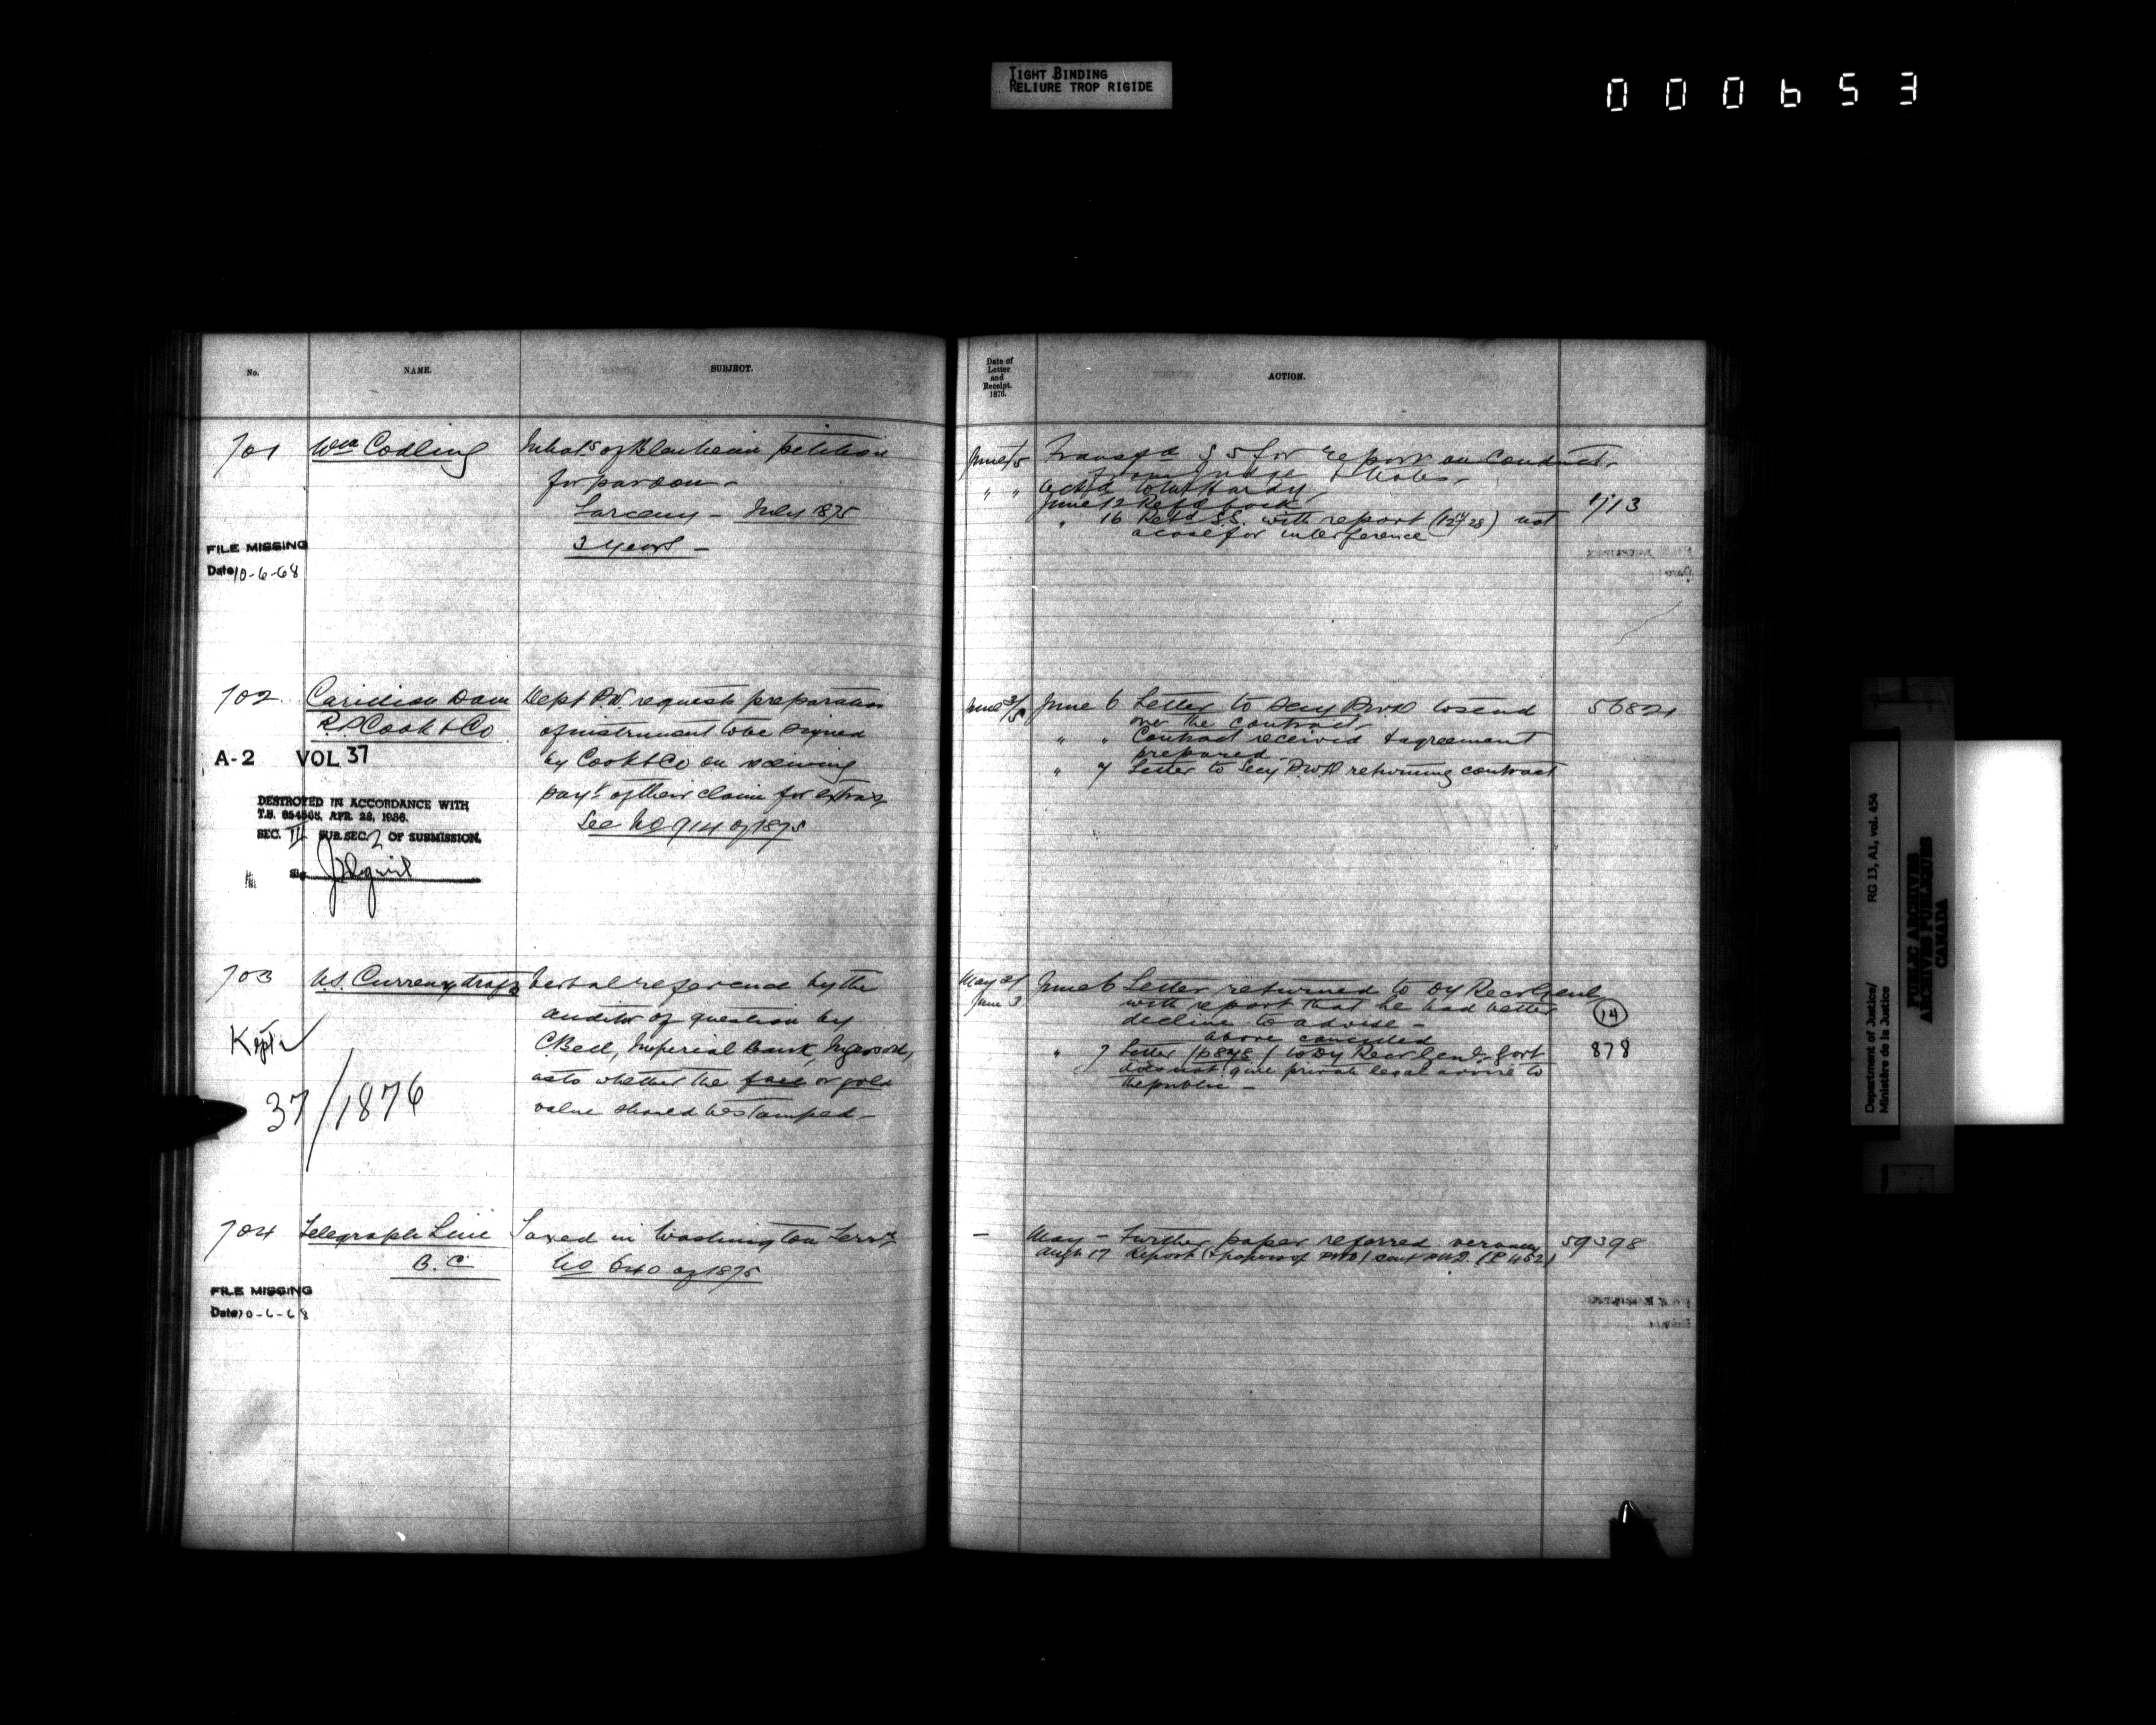 TIGHT BINDING
RELIURE TROP RIGIDE
000653
No.
NAME.
SUBJECT.
701
Wm Codling
Inhabts of Blenheim petition
for pardon -
Larceny - July 1875
3 years -
FILE MISSING
Date 10-6-68
702
Carillon Dam
R.P. Cook & Co
Dept P.W. requests preparation
of instrument to be signed
by Cook & Co on receiving
payt of their claim for extras
See No 914 of 1875
A-2 VOL 37
DESTROYED IN ACCORDANCE WITH
T.B. 654565, APR. 28, 1956.
SEC. II SUB.SEC. 2 OF SUBMISSION.
Sig.
703
U.S. Currency drafts
Verbal reference by the
auditor of question by
C Bell, Imperial Bank, Ingersoll,
as to whether the face or gold
value should be stamped -
Kept
37/1876
704
Telegraph Line
B.C.
Taxed in Washington Terry
No 640 of 1875
FILE MISSING
Date 10-6-68
Date of
Letter
and
Receipt.
1876.
ACTION.
June /5
Transfd S S for report on Conduct
from Judge & Notes -
" " Ackd to Hardy
June 12 Refd back
" 16 Retd S.S. with report (12428) not
a case for interference
713
June 3/5
June 6 Letter to Secy P.W.D to send
over the contract
" " Contract received & agreement
prepared
" 7 Letter to Secy P.W.D returning contract
56821
May 31
June 3
June 6 Letter returned to Dy Recr Genl
with report that he had better
decline to advise -
above cancelled
14
" 7 Letter (p 878) to Dy Recr Genl, Govt
does not give private legal advice to
the public -
878
-
May - Further paper referred
Augt 17 Report (& papers of PWD) sent PWD. (P 452)
59398
Department of Justice/
Ministère de la Justice
RG 13, A1, vol. 454
PUBLIC ARCHIVES
ARCHIVES PUBLIQUES
CANADA